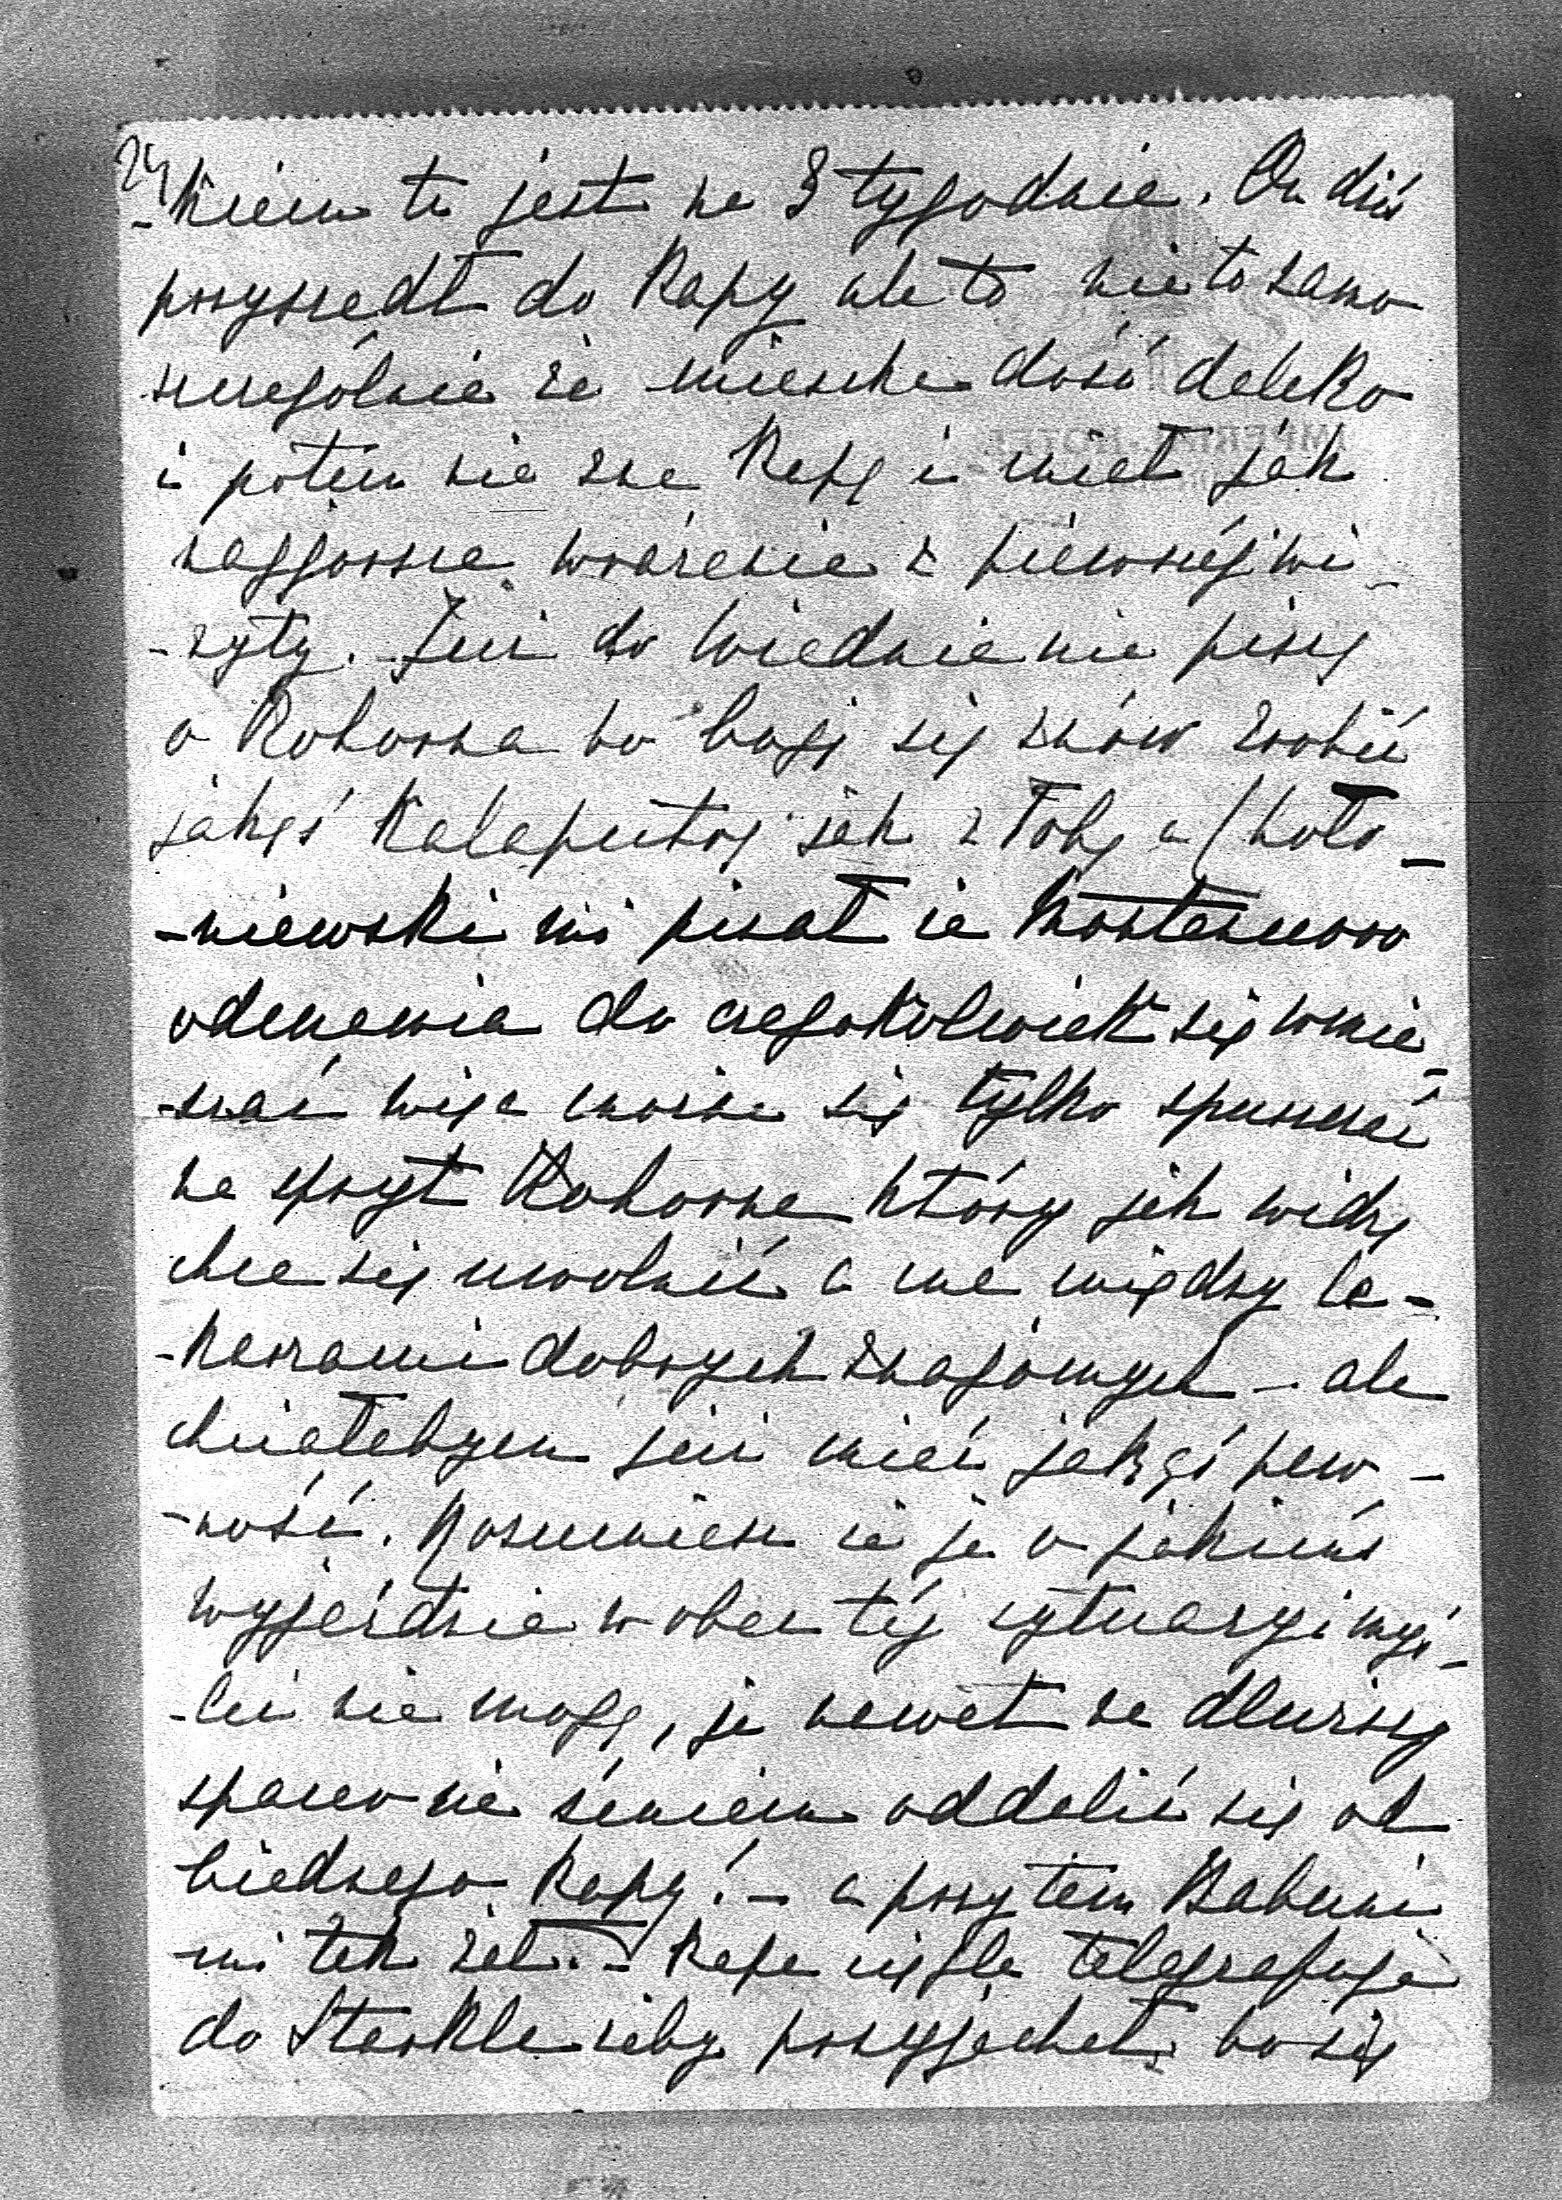 24
-kiem to jest na 3 tygodnie. On dziś
przyszedł do Papy ale to nie to samo
szczególnie że mieszka dość daleko
i potem nie zna Papę i miał jak
najgorsze wrażenie z pierwszéj wi-
-zyty. Już do Wiednia nie piszę
o Kohorna bo boję się znów zrobić
jakąś kalaputrę jak z Tobą a Choło-
-niewski mi pisał że Montenuovo
odmawia do czegokolwiek się wmie-
-szać więc można się tylko spuszczać
na spryt Kohorna który jak widzę
chce się uwolnić a ma między le-
-karzami dobrych znajomych - ale
chciałabym już mieć jakąś pew-
-ność. Rozumiesz że ja o jakimś
wyjeździe wobec téj sytuacyi myś-
-leć nie mogę, ja nawet na dłuższy
spacer nie śmiem oddalić się od
biednego Papy! - a przytem Babuni
mi tak żal. - Papa ciągle telegrafuje
do Sterkla żeby przyjechał, bo się